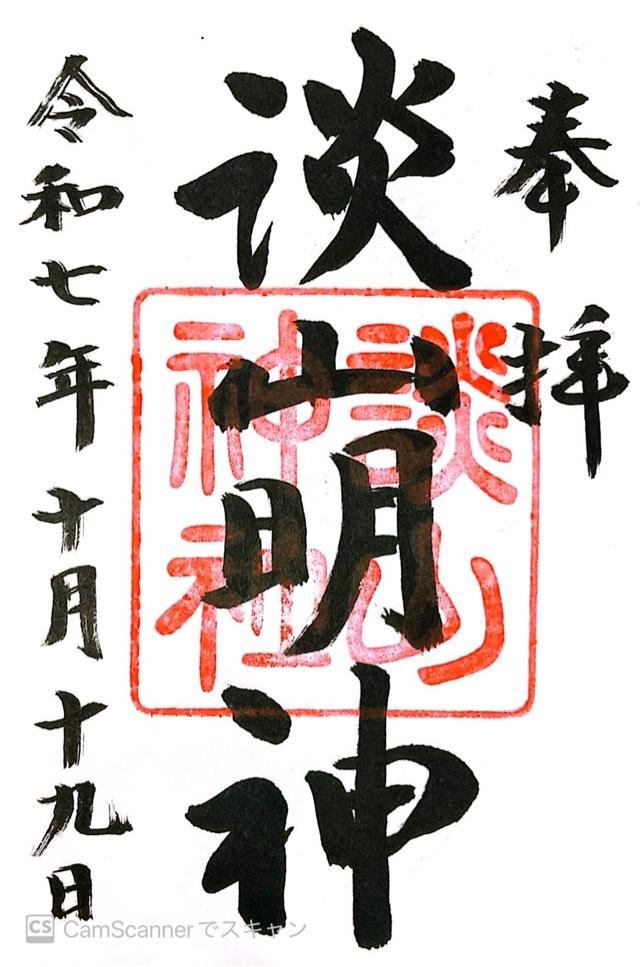 奉拝
談山明神
談山
神社
令和七年十月十九日
CS CamScannerでスキャン